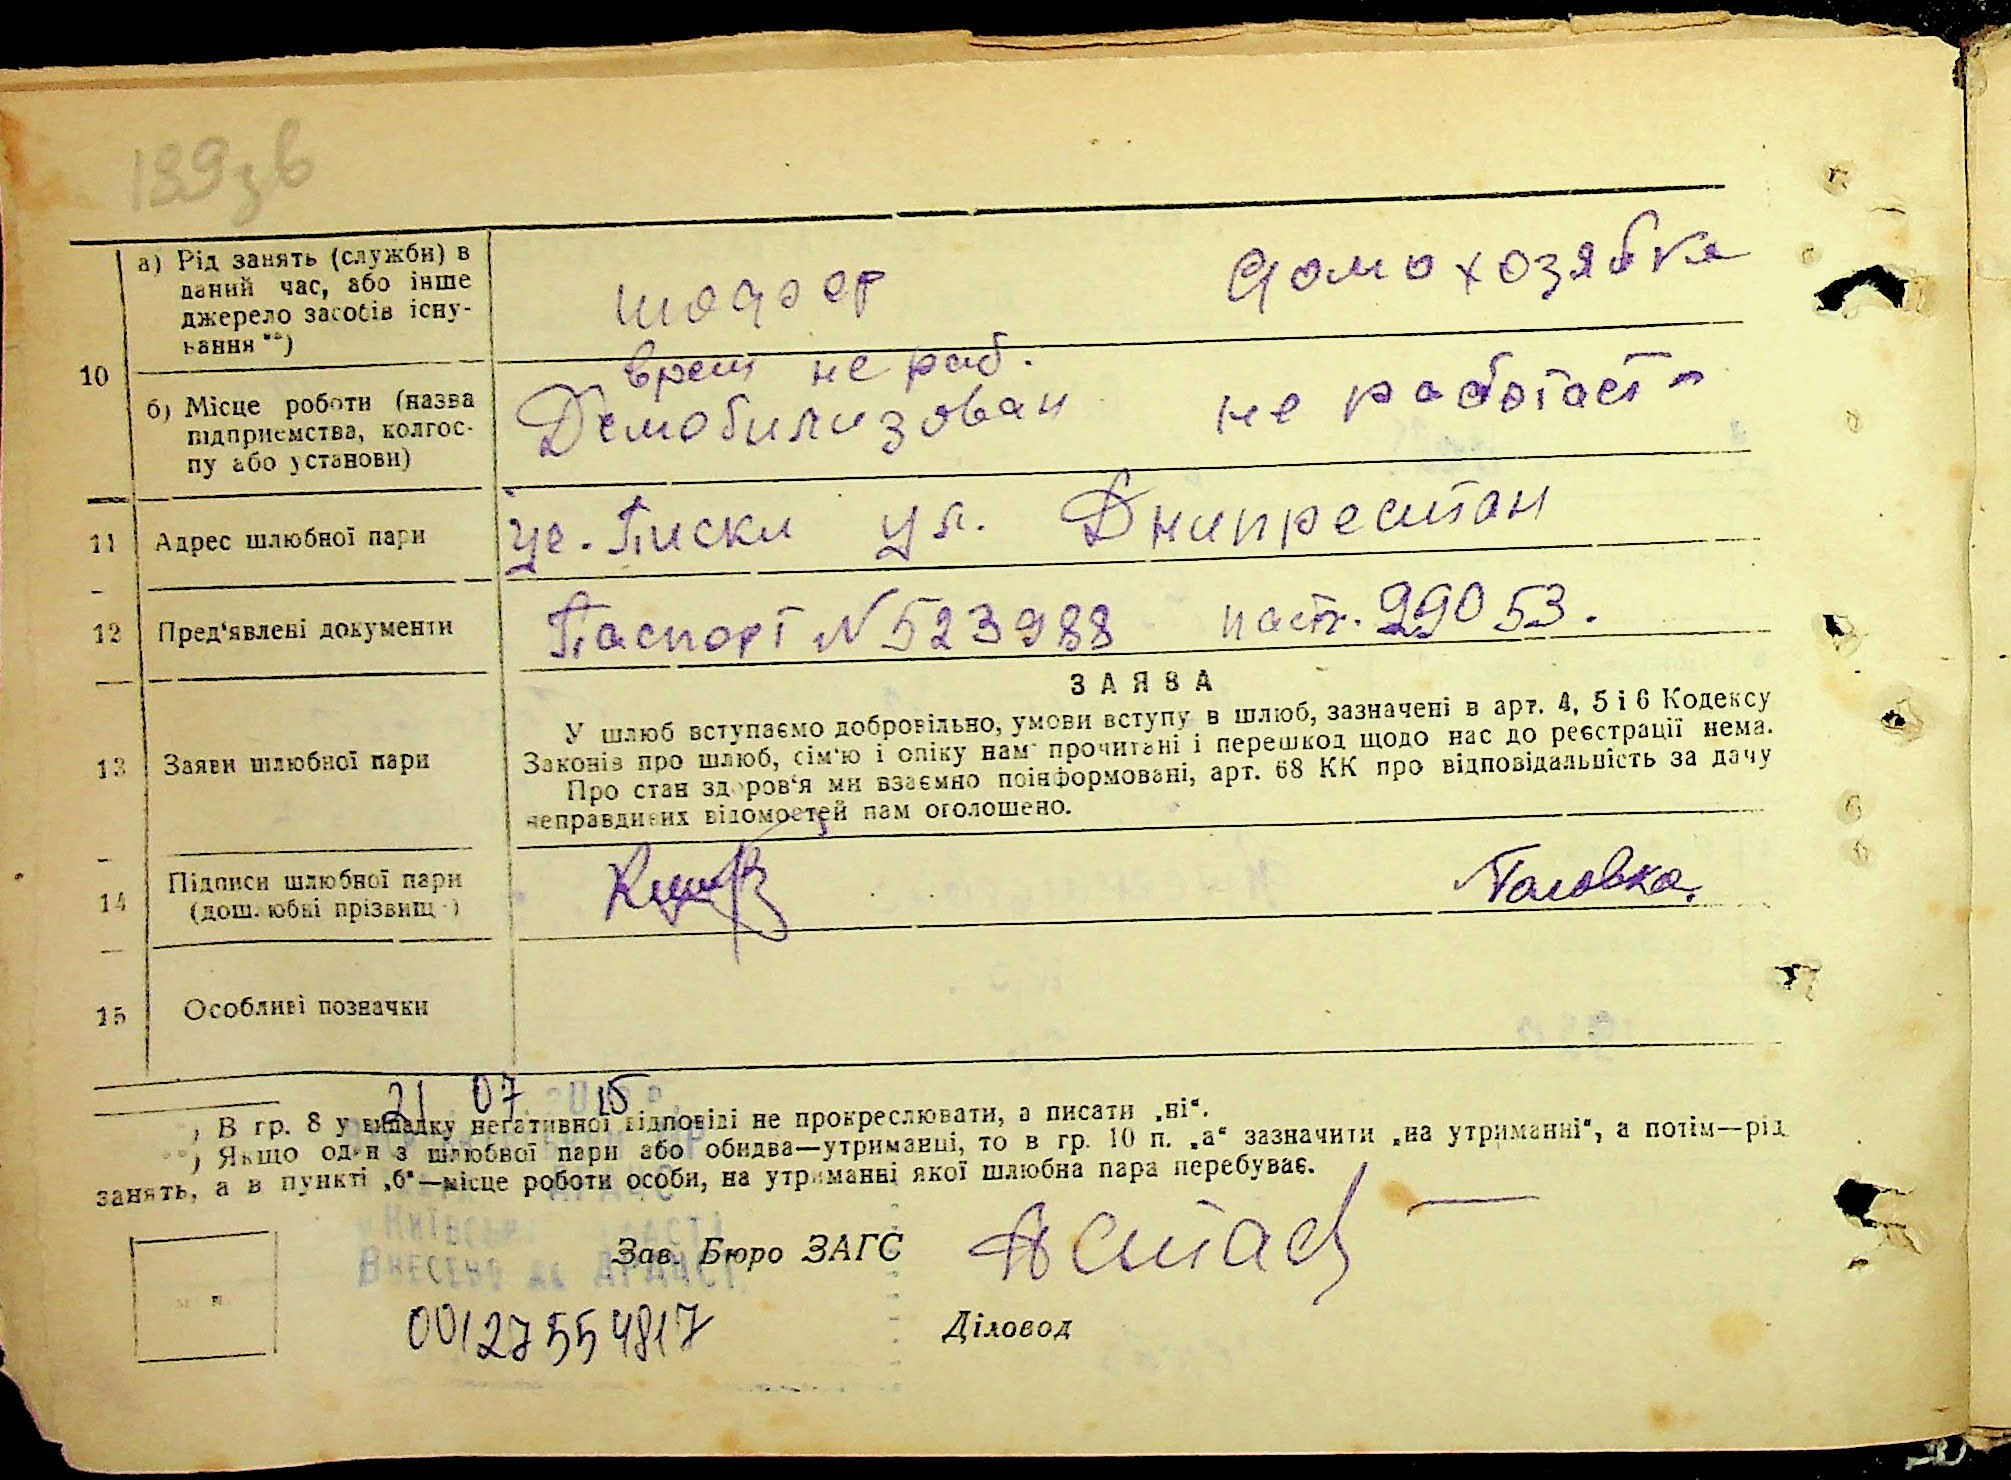 189зв
10
а) Рід занять (служби) в
даний час, або інше
джерело засобів існу-
вання **)
шофер
домохозяйка
б) Місце роботи (назва
підприємства, колгос-
пу або установи)
врем не раб.
Демобилизован
не работает
11
Адрес шлюбної пари
ул. Днипрестан
12
Пред'явлені документи
Паспорт N 523988
пасп. 29053.
13
Заяви шлюбної пари
ЗАЯВА
У шлюб вступаємо добровільно, умови вступу в шлюб, зазначені в арт. 4, 5 і 6 Кодексу
Законів про шлюб, сім'ю і опіку нам прочитані і перешкод щодо нас до реєстрації нема.
Про стан здоров'я ми взаємно поінформовані, арт. 68 КК про відповідальність за дачу
неправдивих відомостей нам оголошено.
14
Підписи шлюбної пари
(дошлюбні прізвища)
Головка
15
Особливі позначки
21 07 15
*) В гр. 8 у випадку негативної відповіді не прокреслювати, а писати „ні".
**) Якщо один з шлюбної пари або обидва—утриманці, то в гр. 10 п. „а" зазначити „на утриманні", а потім—рід
занять, а в пункті „б"—місце роботи особи, на утриманні якої шлюбна пара перебуває.
Київськ області
Внесено до ДРАЦСГ
Зав. Бюро ЗАГС
00127554817
Діловод